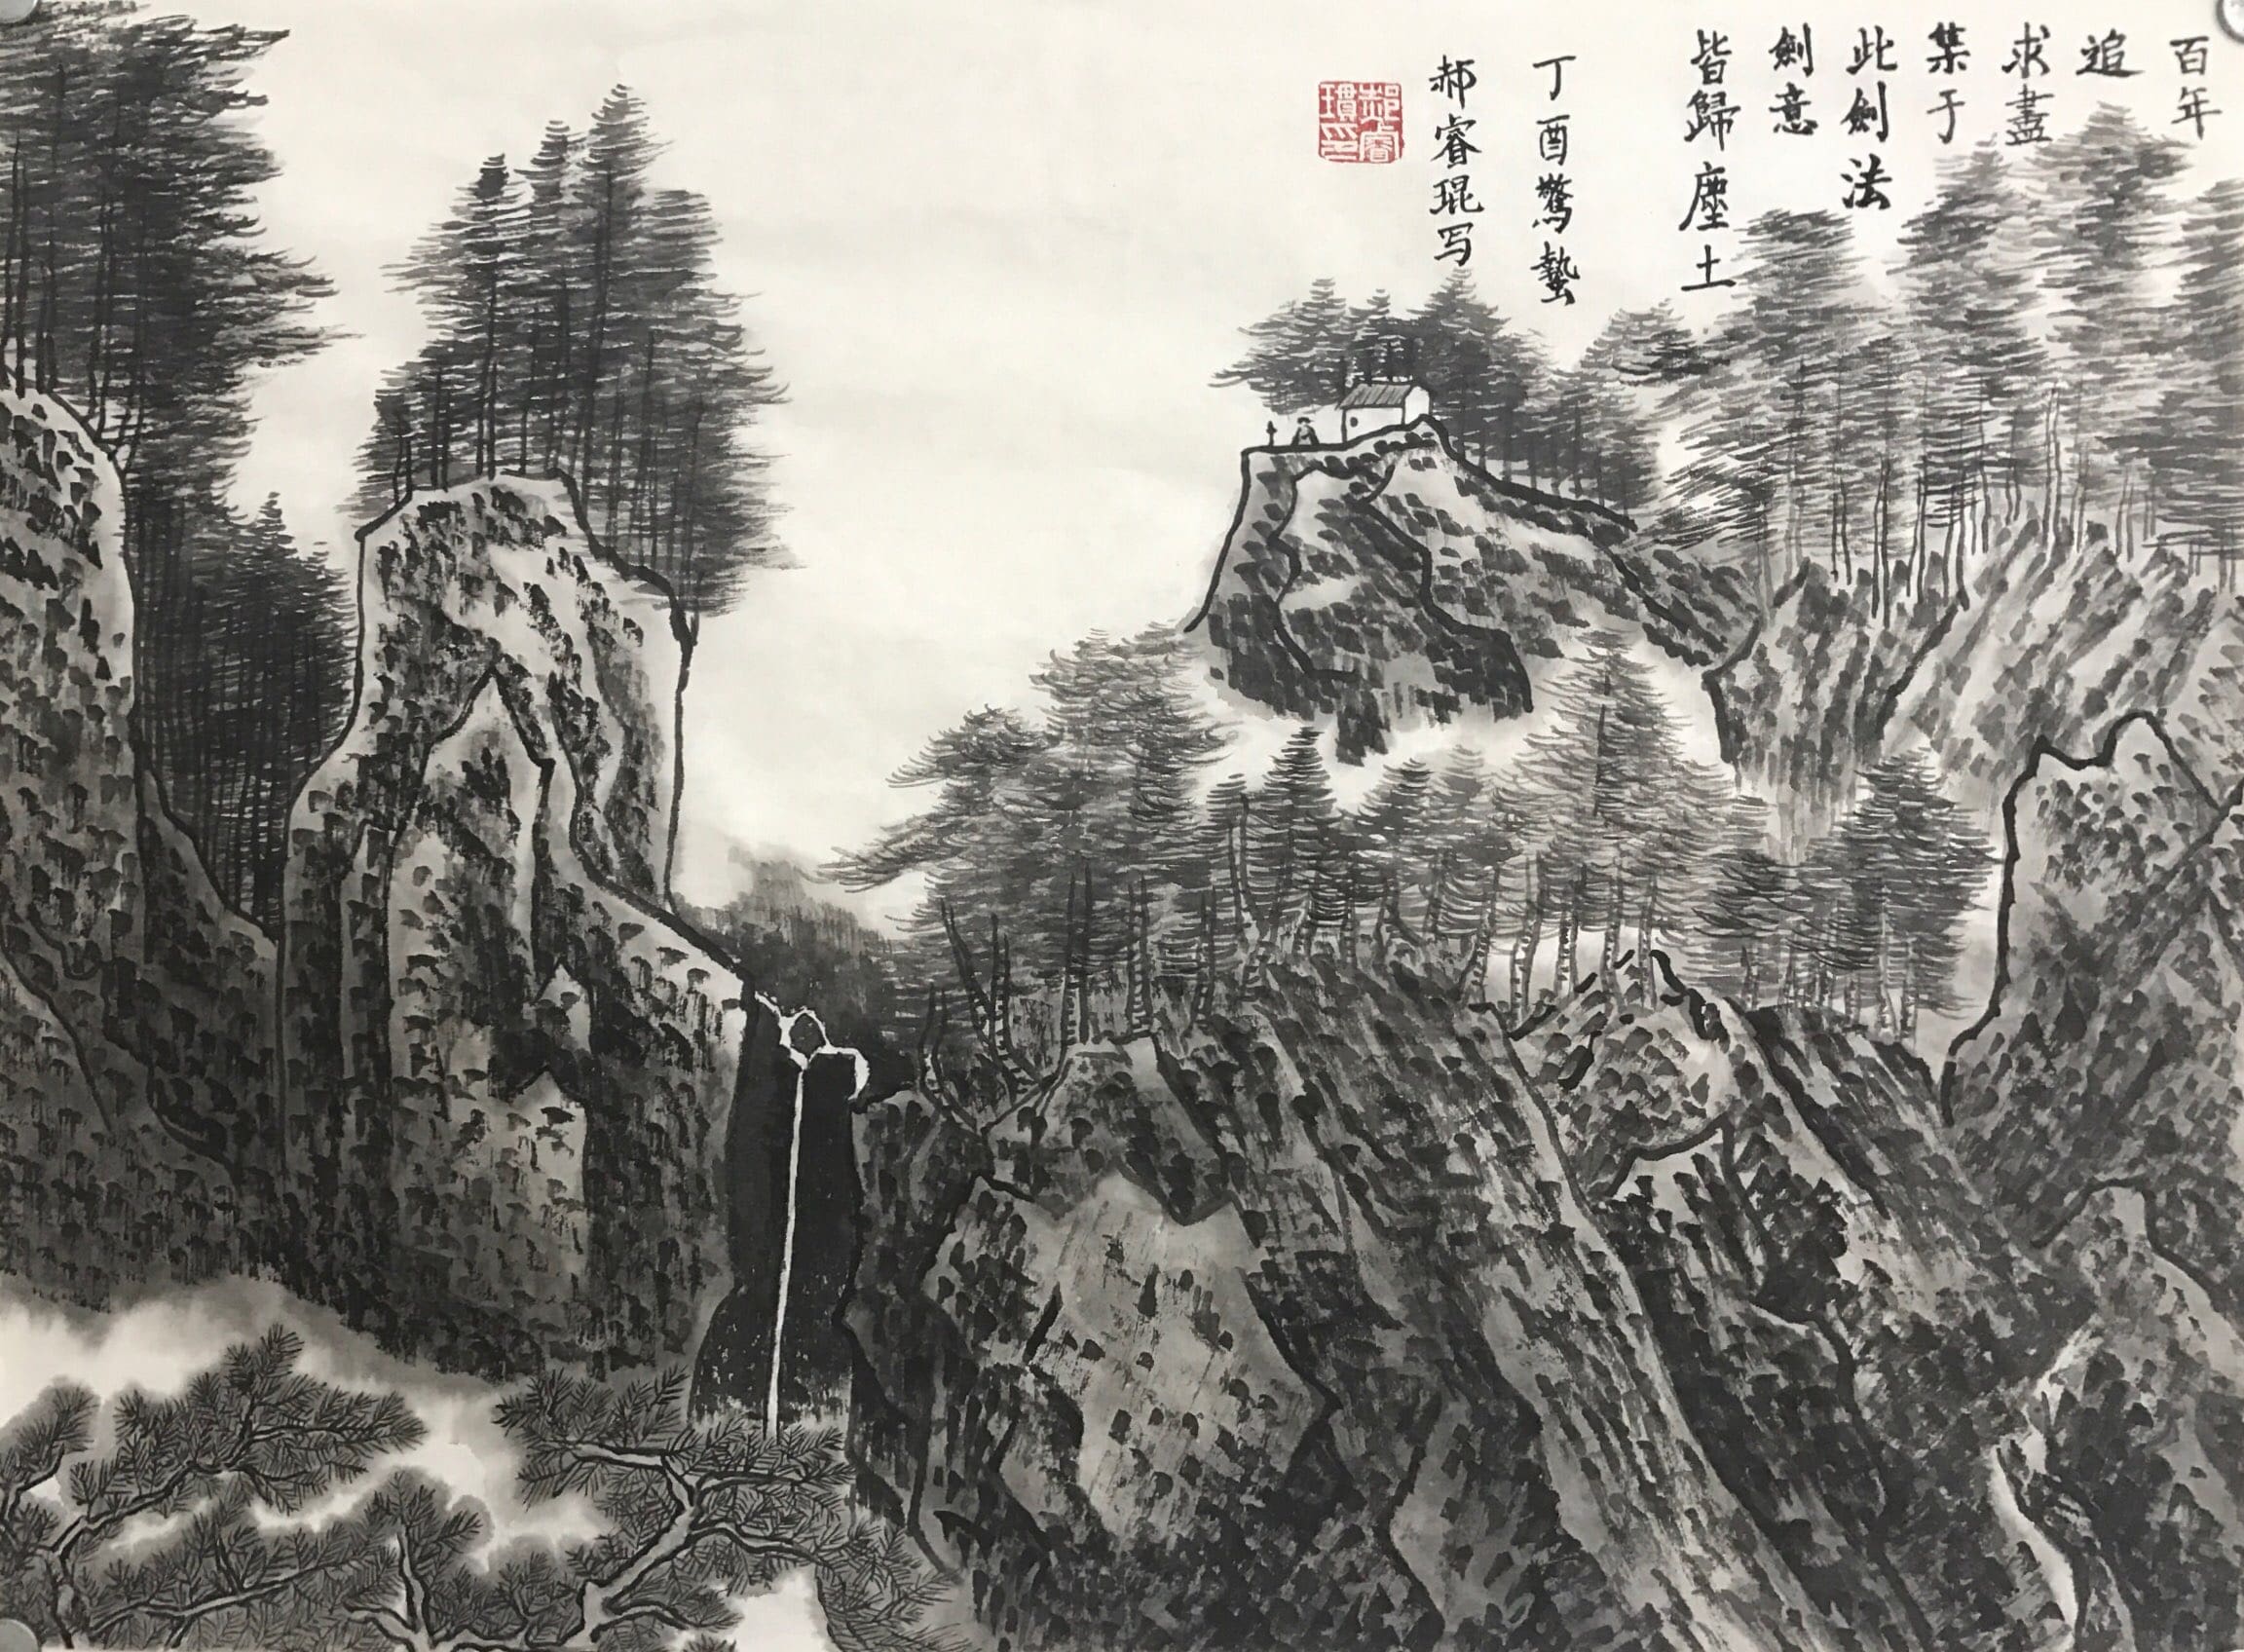 百年
追
求盡
集于
此劍法
劍意
皆歸塵土
丁酉驚蟄
郝睿琨写
郝睿
琨印